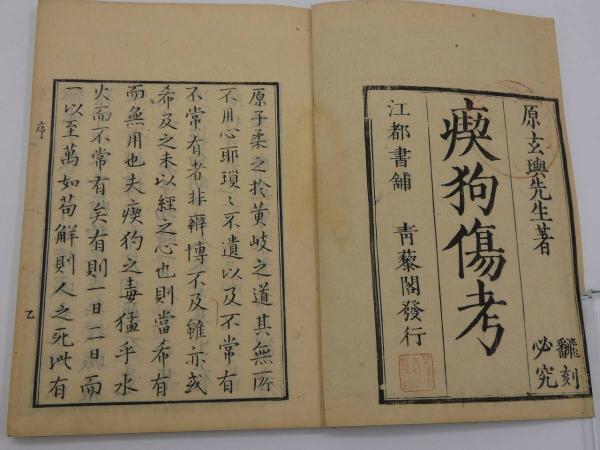 原玄與先生著
瘈狗傷考
飜刻
必究
江都書舖
青藜閣發行
原子柔之於黄岐之道其無所
不用心耶瑣〻不遺以及不常有
不常有者非辯博不及雖亦或
希及之未以經之心也則當希有
而無用也夫瘈狗之毒猛乎水
火而不常有矣有則一日二日而
一以至萬如苟解則人之死此有
序
乙